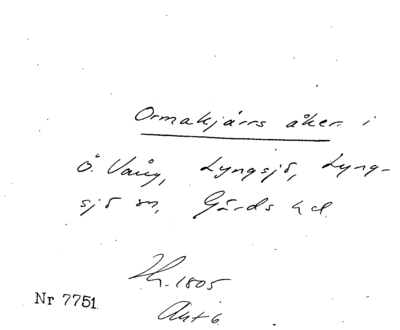 Ormakjärrs åker i
Ö. Vång, Lyngsjö, Lyng-
sjö sn, Gärds hd.
1805
Akt 6
Nr 7751